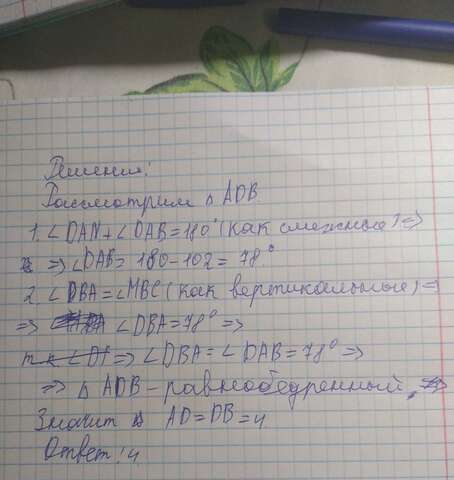 Решение:
Рассмотрим △ ADB
1. ∠DAN+∠DAB=180°(как смежные) ⇒
⇒ ∠DAB= 180-102= 78°
2 ∠DBA=∠MBC(как вертикальные) ⇒
⇒ ∠DBA=78° ⇒
т.к ∠D ⇒ ∠DBA=∠DAB=78° ⇒
⇒ △ ADB-равнобедренный, ⇒
Значит AD=DB=4
Ответ: 4